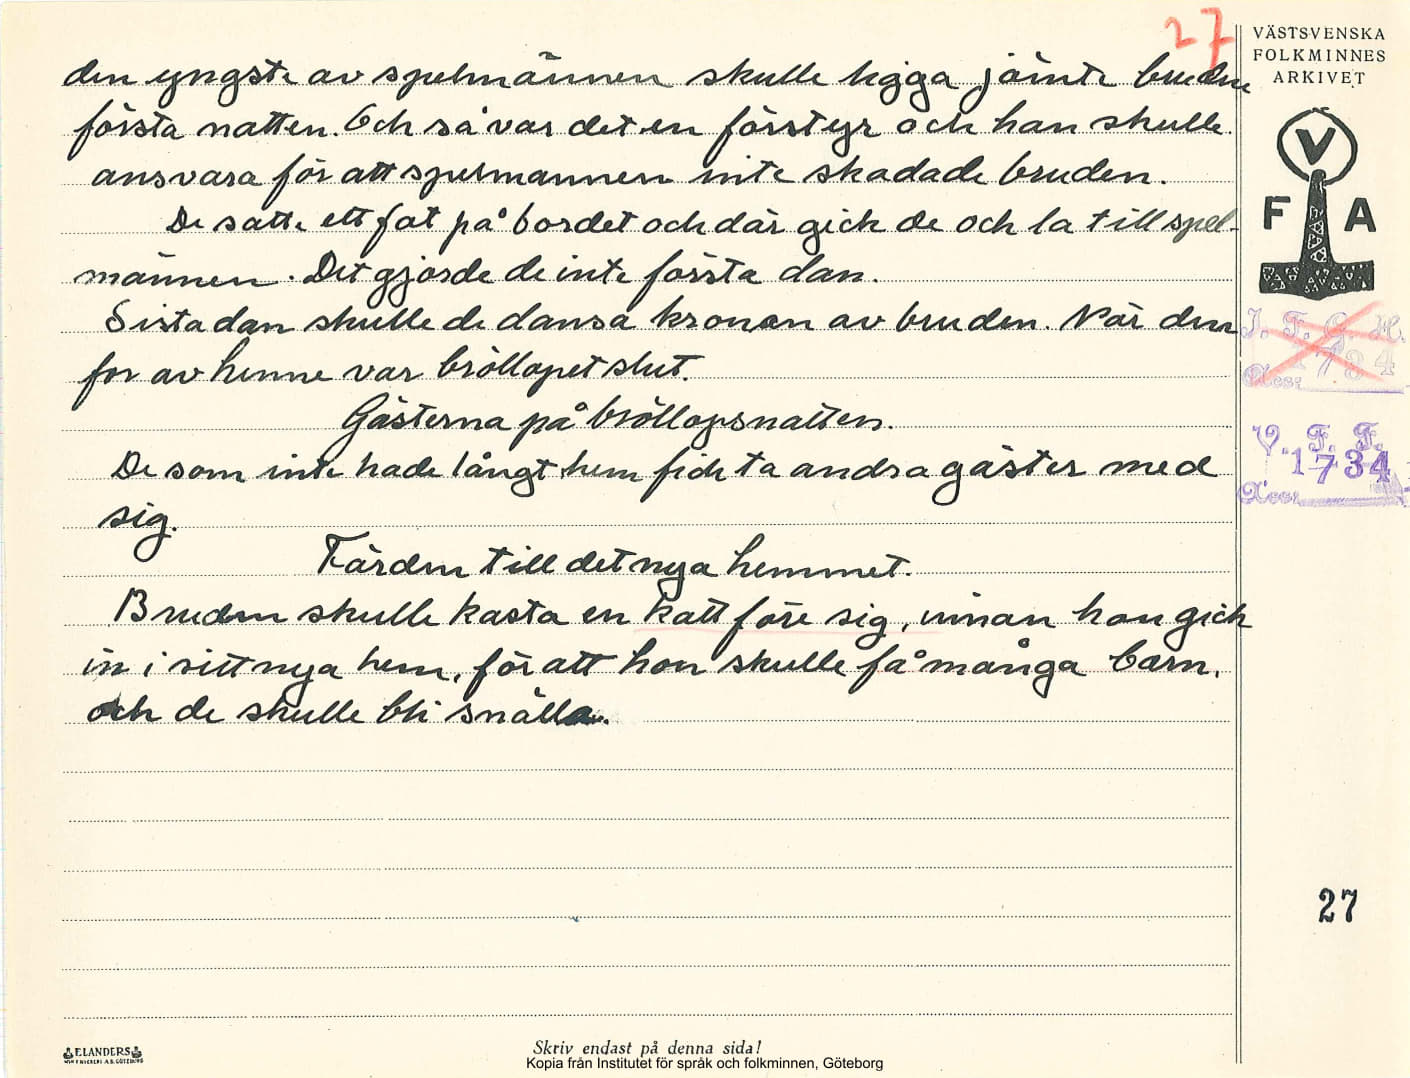 27
VÄSTSVENSKA
FOLKMINNES
ARKIVET
V
F A
den yngste av spelmännen skulle ligga jämte bruden
första natten. Och så var det en förstyr och han skulle
ansvara för att spelmannen inte skadade bruden.
De satte ett fat på bordet och där gick de och la till spel-
männen. Det gjorde de inte första dan.
Sista dan skulle de dansa kronan av bruden. När den
for av henne var bröllopet slut.
Gästerna på bröllopsnatten.
De som inte hade långt hem fick ta andra gäster med
sig.
Färden till det nya hemmet.
Bruden skulle kasta en katt före sig, innan hon gick
in i sitt nya hem, för att hon skulle få många barn,
och de skulle bli snälla.
I. F. G. H.
1734
Acc:
V. F. F.
1734
Acc:
27
ELANDERS
Skriv endast på denna sida!
Kopia från Institutet för språk och folkminnen, Göteborg